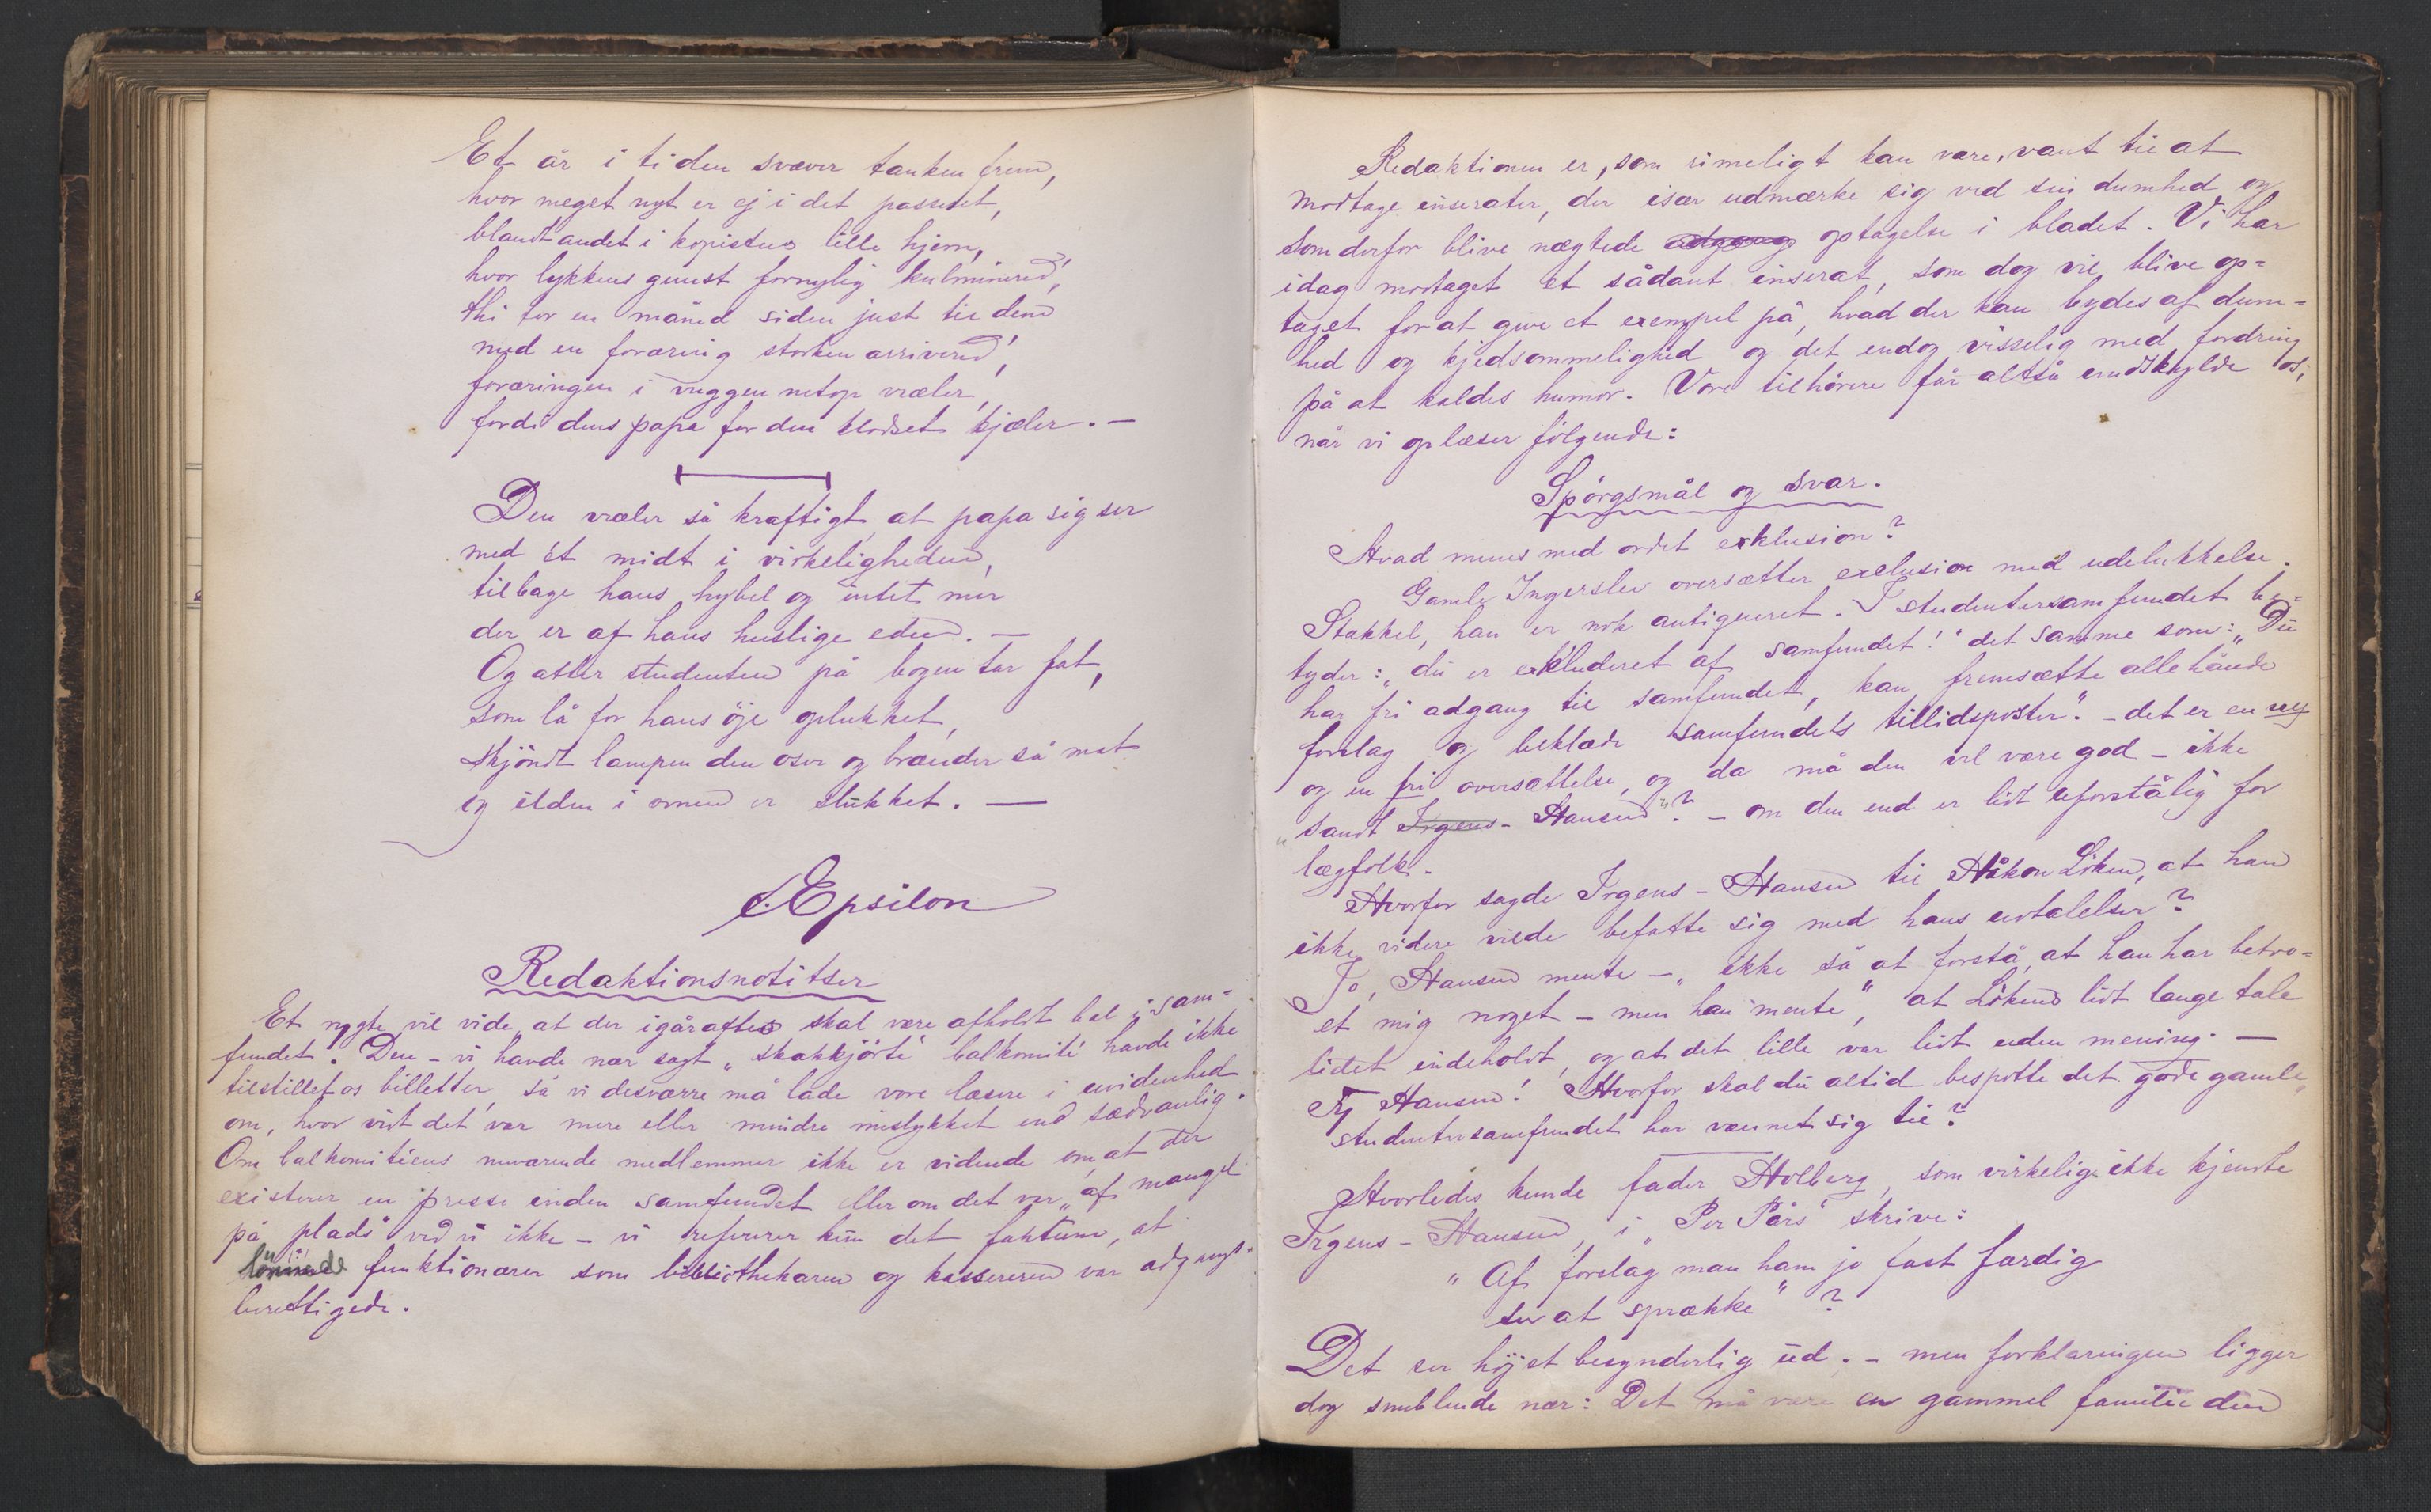 Et år i tiden svæver tanken frem,
hvor meget nyt er ej i det passeret,
blandt andet i kopistens lille hjem,
hvor lykkens gunst fornylig kulminered',
thi for en måned siden just til dem
med en foræring storken arrivered',
foræringen i vuggen netop vræler,
fordi dens papa for den kladset kjæler. —
Den vræler så kraftigt, at papa sig ser
med ét midt i virkeligheden,
tilbage hans hybel og intet mer
der er af hans huslige eden. —
Og atter studenten på bogen tar fat,
som lå for hans öje oplukket,
skjöndt lampen den oser og brænder så mat
og ilden i ovnen er slukket. —
Epsilon
Redaktionsnotitser
Et rygte vil vide, at der igåraftes skal være afholdt bal i sam=
fundet. Den – vi havde nær sagt „skakkjörte" balkomité havde ikke
tilstillet os billetter, så vi desværre må lade vore læsere i uvidenhed
om, hvor vidt det var mere eller mindre mislykket end sædvanlig.
Om balkomitéens nuværende medlemmer ikke er vidende om, at der
existerer en presse inden samfundet eller om det var „af mangel
på plads" ved vi ikke – vi refererer kun det faktum, at
lönnede funktionærer som bibliothekaren og kassereren var adgangs=
berettigede.
Redaktionen er, som rimeligt kan være, vant til at
modtage inserater, der især udmærke sig ved sin dumhed og
som derfor blive nægtede adgang optagelse i bladet. Vi har
idag modtaget et sådant inserat, som dog vil blive op=
taget for at give et exempel på, hvad der kan bydes af dum=
hed og kjedsommelighed og det endog visselig med fordring
på at kaldes humor. Vore tilhörere får altså undskylde os,
når vi oplæser fölgende:
Spörgsmål og svar.
Hvad menes med ordet exklusion?
Gamle Ingerslev oversætter exclusion med udelukkelse.
Stakkel, han er nok antiqueret. I studentersamfundet be=
tyder: „du er exkluderet af samfundet!" det samme som: „Du
har fri adgang til samfundet, kan fremsætte allehånde
forslag og beklæde samfundets tillidsposter". – det er en ny
og en fri oversættelse, og da må den vel være god – ikke
„sandt Irgens-Hansen"? – om den end er lidt uforståelig for
lægfolk.
Hvorfor sagde Irgens-Hansen til Håkon Löken, at han
ikke videre vilde befatte sig med hans udtalelser?
Jo, Hansen mente –„ikke så at forstå, at han har betro=
et mig noget – men han mente", at Lökens lidt lange tale
lidet indeholdt, og at det lille var lidt uden mening. —
Fy Hansen! Hvorfor skal du altid bespotte det gode gamle,
studentersamfundet har vænnet sig til?
Hvorledes kunde fader Holberg, som virkelig ikke kjendte
Irgens-Hansen, i „Per Pårs" skrive:
„Af forslag man ham jo fast færdig
ser at sprække"?
Det ser höjst besynderlig ud. – men forklaringen ligger
dog snublende nær: Det må være en gammel familie